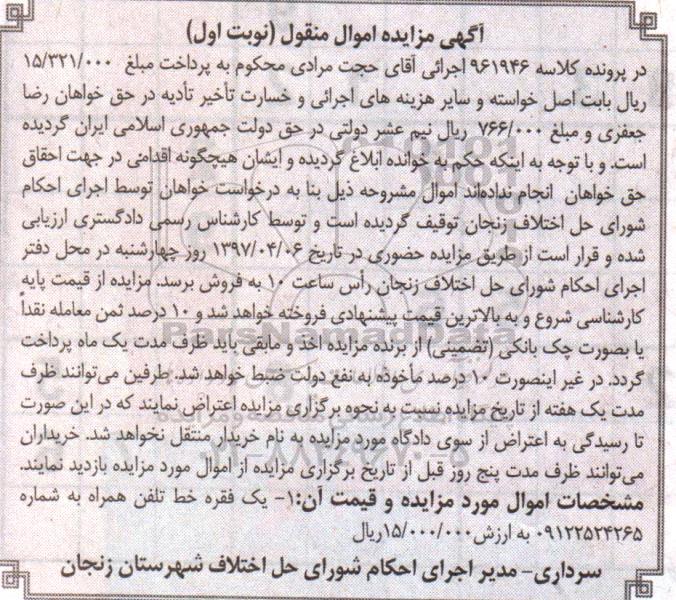 آگهی مزایده اموال منقول (نوبت اول)
در پرونده کلاسه ۹۶۱۹۴۶ اجرائی آقای حجت مرادی محکوم به پرداخت مبلغ ۱۵/۳۲۱/۰۰۰
ریال بابت اصل خواسته و سایر هزینه های اجرائی و خسارت تأخیر تأدیه در حق خواهان رضا
جعفری و مبلغ ۷۶۶/۰۰۰ ریال نیم عشر دولتی در حق دولت جمهوری اسلامی ایران گردیده
است. و با توجه به اینکه حکم به خوانده ابلاغ گردیده و ایشان هیچگونه اقدامی در جهت احقاق
حق خواهان انجام نداده‌اند اموال مشروحه ذیل بنا به درخواست خواهان توسط اجرای احکام
شورای حل اختلاف زنجان توقیف گردیده است و توسط کارشناس رسمی دادگستری ارزیابی
شده و قرار است از طریق مزایده حضوری در تاریخ ۱۳۹۷/۰۴/۰۶ روز چهارشنبه در محل دفتر
اجرای احکام شورای حل اختلاف زنجان رأس ساعت ۱۰ به فروش برسد. مزایده از قیمت پایه
کارشناسی شروع و به بالاترین قیمت پیشنهادی فروخته خواهد شد و ۱۰ درصد ثمن معامله نقداً
یا بصورت چک بانکی (تضمینی) از برنده مزایده اخذ و مابقی باید ظرف مدت یک ماه پرداخت
گردد. در غیر اینصورت ۱۰ درصد مأخوذه به نفع دولت ضبط خواهد شد. طرفین می‌توانند ظرف
مدت یک هفته از تاریخ مزایده نسبت به نحوه برگزاری مزایده اعتراض نمایند که در این صورت
تا رسیدگی به اعتراض از سوی دادگاه مورد مزایده به نام خریدار منتقل نخواهد شد. خریداران
می‌توانند ظرف مدت پنج روز قبل از تاریخ برگزاری مزایده از اموال مورد مزایده بازدید نمایند.
مشخصات اموال مورد مزایده و قیمت آن:۱- یک فقره خط تلفن همراه به شماره
۰۹۱۲۲۵۲۴۲۶۵ به ارزش ۱۵/۰۰۰/۰۰۰ریال
سرداری- مدیر اجرای احکام شورای حل اختلاف شهرستان زنجان
ParsNamadData
۰۲۱-۸۸۳۴۹۶۷۰-۵